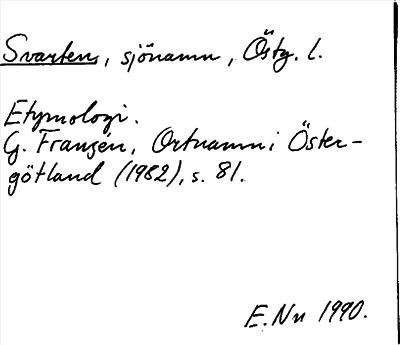 Svarten, sjönamn, Östg. l.
Etymologi.
G. Franzén, Ortnamn i Öster-
götland (1982), s. 81.
E. Nn 1990.